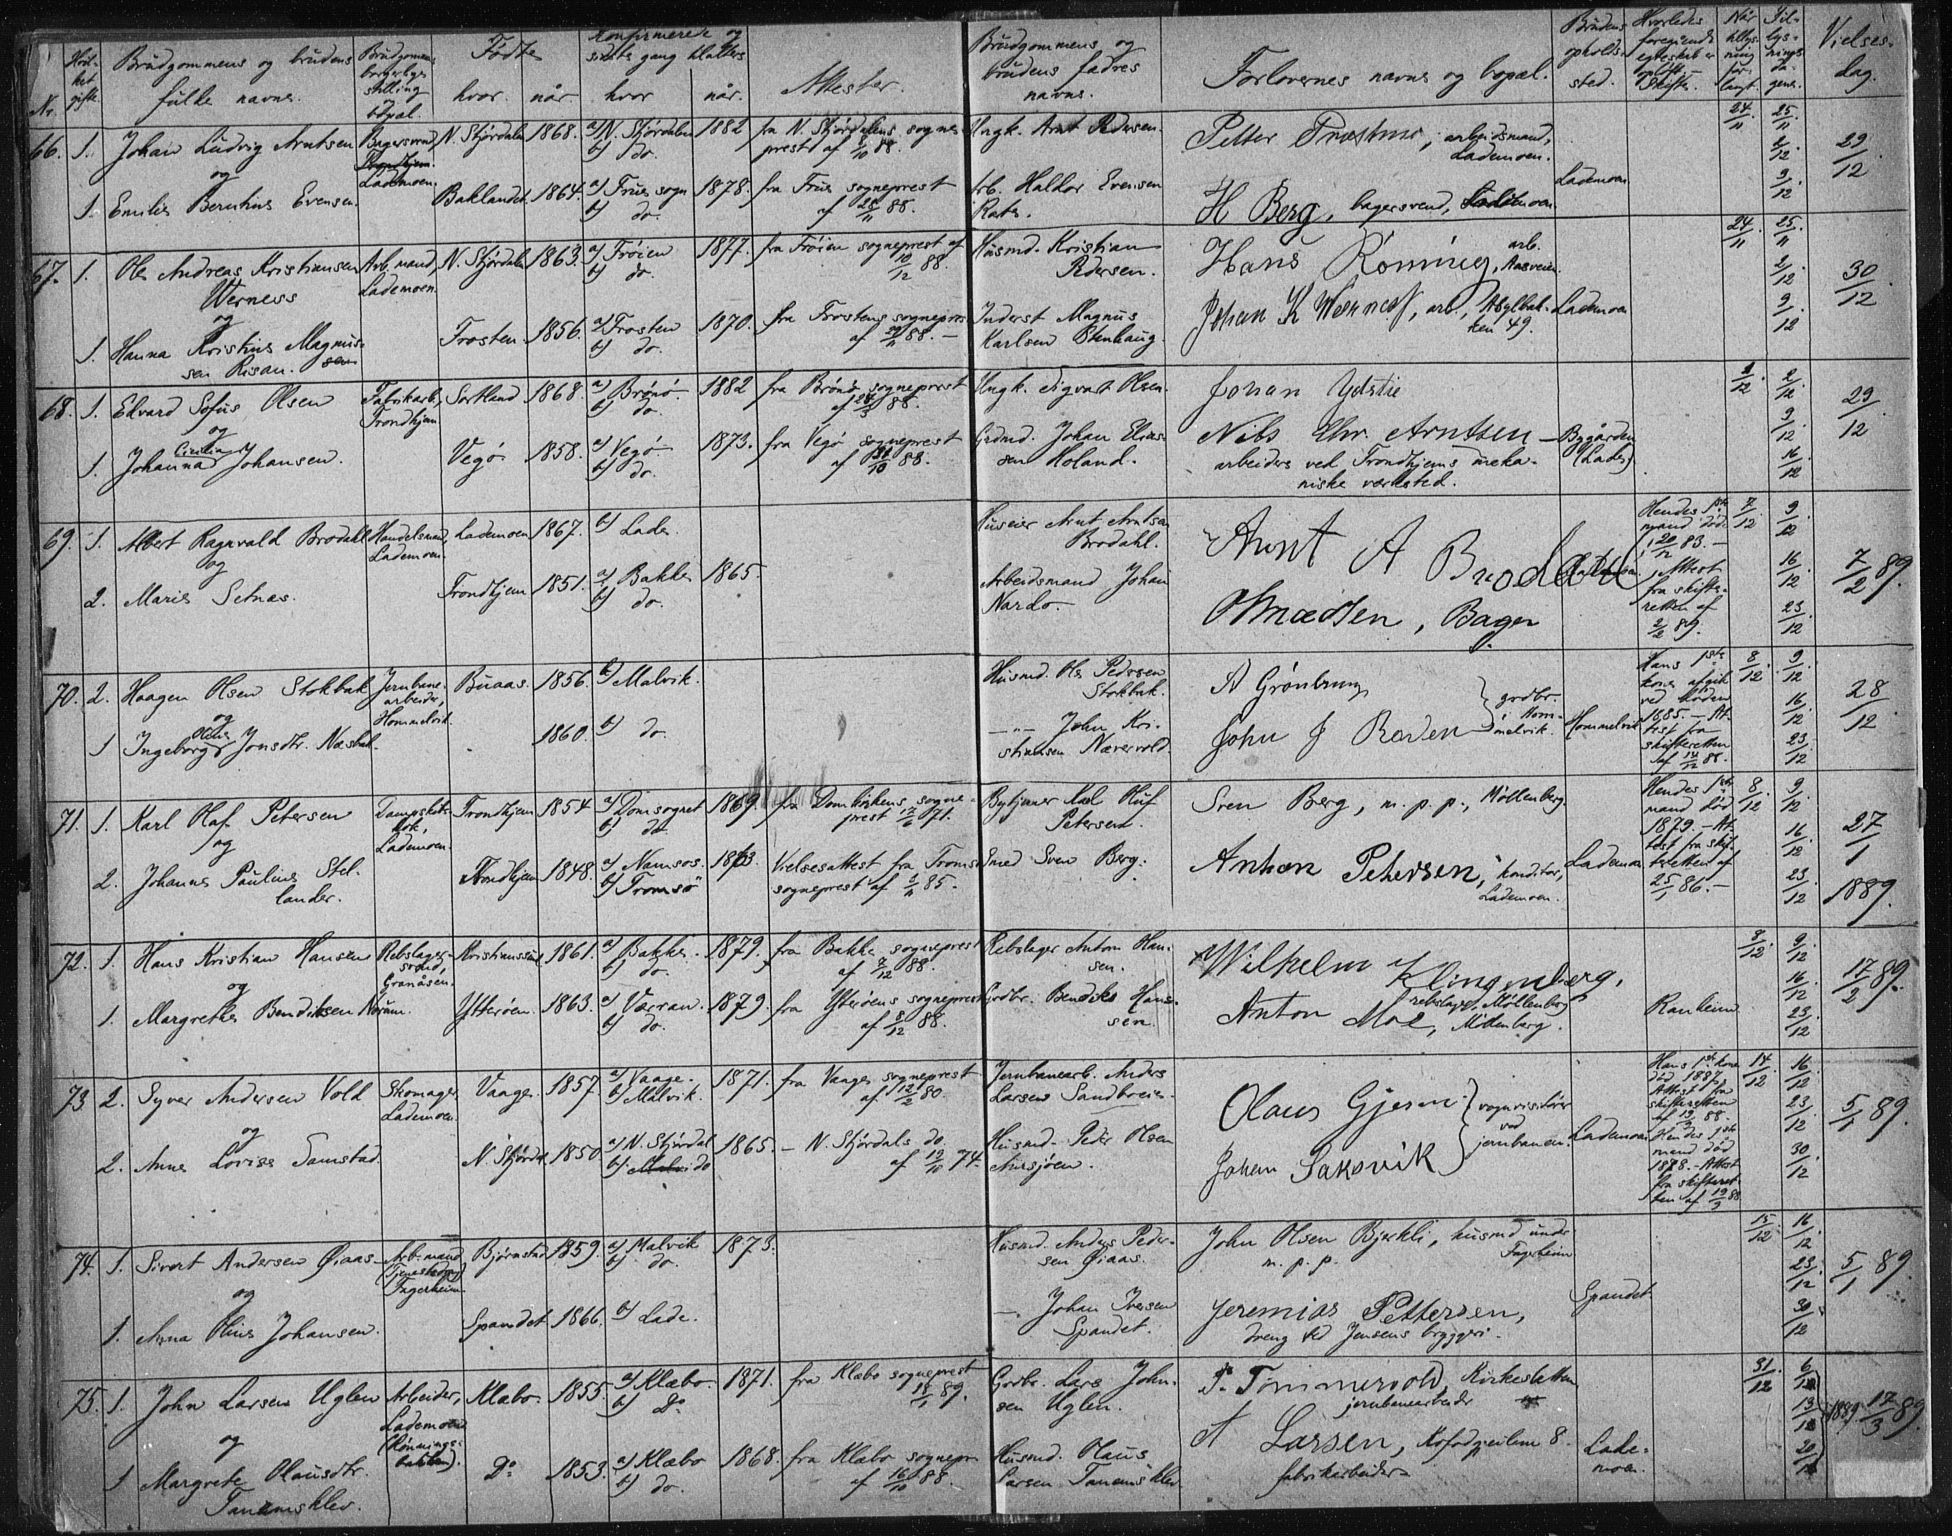 No.
Hvil-
ket
gifte.
Brudgommens og brudens
fulde navne.
Brudgommens
borgerlige
stilling
bopæl.
Fødte
hvor. når.
konfirmerede og
sidste gang
hvor når.
Attester.
Brudgommens og
brudens fædres
navne.
Forlovernes navne og bopæl.
Brudens
opholds-
sted.
Hvorledes
foregående
egteskab er
opløst.
Skifte.
Når
lysning
for-
langt.
Til-
lys-
nings-
da-
gene.
Vielses-
dag.
66. 1. Johan Ludvig Arntsen Bagersvend, Lademoen. N. Stjørdalen 1868. a) N. Stjørdalen b) do. 1882 fra N. Stjørdalens sogne-
prest af 88. Ungk. Arnt Pedersen. Petter, arbeidsmand, Lademoen. 24/11 25/11 2/12 9/12 29/12
og
1. Emilie Evensen. Baklandet 1864. a) Frue sogn b) do. 1878. fra Frue sogneprest
af 88. Arb. Haldor Evensen H Berg, bagersvend, Lademoen
67. 1. Ole Andreas Kristiansen
Werness Arb.mand, Lademoen. N. Stjørdalen 1863. a) Frøien b) do. 1877. fra Frøien sogneprest af
10/12 88. Husmd. Kristian
Pedersen. Hans Rönning, arb. 24/11 25/11 2/12 9/12 30/12
og
1. Hanna Kristine Magnus-
sen Risan. Frosten 1856. a) Frosten b) do. 1870. fra Frostens sognepr.
af 88. Inderst Magnus
Karlsen Stenhaug. Johan K Werness, arb., 49. Lademoen
68. 1. Edvard Sofus Olsen Fabrikarb., Trondhjem Sortland 1868. a) Brønø b) do. 1882 fra Brønø sogneprest
af 88. Ungk. Sigvard Olsen. Johan Ydstie 2/12 2/12 9/12 16/12 29/12
og
1. Johanna Johansen. Vegø 1858. a) Vegø b) do. 1873. fra Vegø sogneprest
af 88. Grdmd. Johan Elias-
sen Holand. Nils Chr. Arntsen
arbeidere ved Trondhjems meka-
niske værksted. Bygården (Lade)
69. 1. Albert Ragnvald Brodahl Handelsmand, Lademoen. Lademoen 1867. b) Lade. Huseier Arnt Arntsen
Brodahl. Arnt A Brodahl Hendes 1ste
mand død
20/12 83.
Attest
fra skifte-
retten af
2/2 89. 7/12 9/12 16/12 23/12 7/2 89.
og
2. Marie Setnæs. Trondhjem 1851. a) Bakke b) do. 1865. Arbeidsmand Johan
Nardo. O Madsen, Bager
70. 2. Haagen Olsen Stokbak Jernbane-
arbeider,
Hommelvik. Buaas. 1856. b) Malvik. Husmd. Ole Pedersen
Stokbak. A Grönbrung Hans 1ste
kone afgik
ved døden
1885. – At-
test fra
skifteretten
af 88. 8/12 9/12 16/12 23/12 28/12
og
1 Ingeborg Oline Jonsdtr. Næsbak. 1860. b) do. John Kri-
stiansen Næsvold. John J Roden grdbr. i Hom-
melvik. Hommelvik
71. 1. Karl Olaf Petersen Dampskibs-
kok, Lademoen. Trondhjem 1854 a) Domsognet b) do. 1869. fra Domkirkens sogne-
prest 71. Bytjener Karl Oluf
Petersen. Sven Berg, m. p. p., Möllenberg Hendes 1ste
mand død
1879. – At-
test fra skif-
teretten af
25/1 86. – 8/12 9/12 16/12 23/12 27/1 1889.
og
2. Johanne Pauline Stel-
lander. Trondhjem 1848. a) Namsos. b) Tromsø 1863. Vielsesattest fra Tromsø
sogneprest af 85. Smed Sven Berg. Anton Petersen, konditor,
Lademoen. Lademoen
72. 1. Hans Kristian Hansen Rebslager-
svend,
Granåsen. Kristianssund 1861. a) Bakke. b) do. 1879. fra Bakke sogneprest
af 88. Rebslager Anton Han-
sen. Wilhelm Klingenberg,
rebslager, Møllenberg 8/12 9/12 16/12 23/12 17/2 89.
og
1. Margrethe Bendiksen Norum. Ytterøen. 1863. a) Værran. b) do. 1879. fra Ytterøens sogneprest
af 8/12 88. Grdbr. Bendiks Han-
sen. Anton Moe, Möllenberg. Ranheim
73. 2. Syver Andersen Vold Skomager, Lademoen. Vaage. 1857. a) Vaage. b) Malvik. 1871. fra Vaages sogneprest
af 12/2 80. Jernbanearb. Anders
Larsen Sandbreien. Olaus Gjersn vognvisitører
ved
jernbanen. Hans 1ste kone
død 1887.
Attest fra
skifteretten
af 88.
Hendes 1ste
mand død
1888. – Attest
fra skifteret-
ten af 88. 14/12 16/12 23/12 30/12 5/1 89.
og
2. Anne Lovise Samstad. N. Stjørdal 1850 a) N. Stjørdal b) do 1865. – N. Stjørdals do.
af 12/10 74. Husmd. Peter Olsen
Aunsjøen. Johan Saksvik Lademoen
74. 1. Sivert Andersen Øiaas Arb.mand
(Tjenestedreng)
Fagerheim. Bjørnstad 1859. a) Malvik b) do. 1873. Husmd. Anders Peder-
sen Øiaas. John Olsen Bjerkli, husmd under
m. p. p. Fagerheim 15/12 16/12 23/12 30/12 5/1 89.
og
1. Anna Oline Johansen. Spandet 1866. b) Lade. Johan Iversen
Spandet. Jeremias Pettersen,
dreng ved Jensens bryggeri. Spandet
75. 1. John Larsen Uglen Arbeider,
Lademoen
(Rønnings-
bakken). Klæbo. 1855. a) Klæbo. b) Do 1871. fra Klæbo sogneprest
89. Gardbr. Lars John-
sen Uglen. P. Tømmervold, Kirkesletten
jernbanearbeider 31/12 1889 17/3 89.
og
1 Margrete Olausdtr.
Tanemsklev. Do 1853. a) Klæbo b) do. 1868. fra Klæbo sognepr.
af 16/10 88. Husmd. Olaus
Larsen Tanemsklev A Larsen, 8.
fabrikarbeider Lade-
moen.